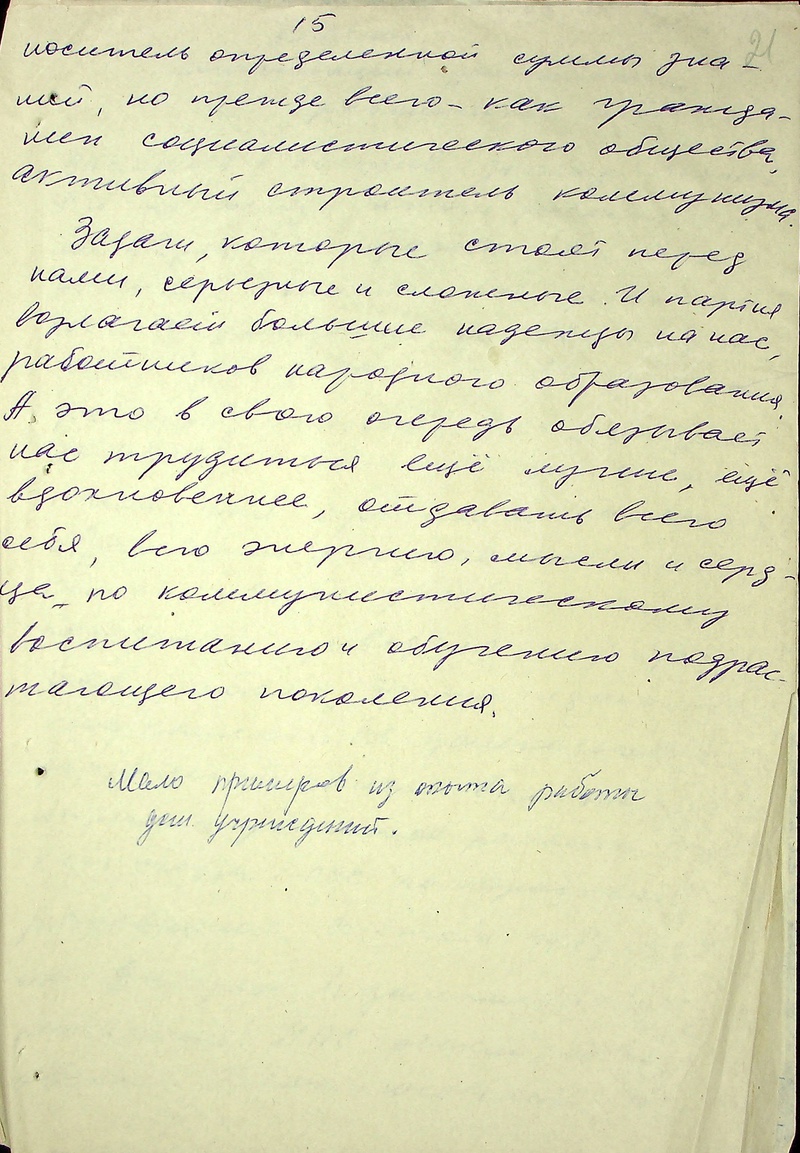 15
21
носитель определенной суммы зна-
ний, но прежде всего - как гражда-
нин социалистического общества,
активный строитель коммунизма.
Задачи, которые стоят перед
нами, серьезные и сложные. И партия
возлагает большие надежды на нас,
работников народного образования.
А это в свою очередь обязывает
нас трудиться ещё лучше, ещё
вдохновеннее, отдавать всего
себя, всю энергию, мысли и серд-
ца по коммунистическому
воспитанию и обучению подрас-
тающего поколения.
Мало примеров из опыта работы
дош. учреждений.